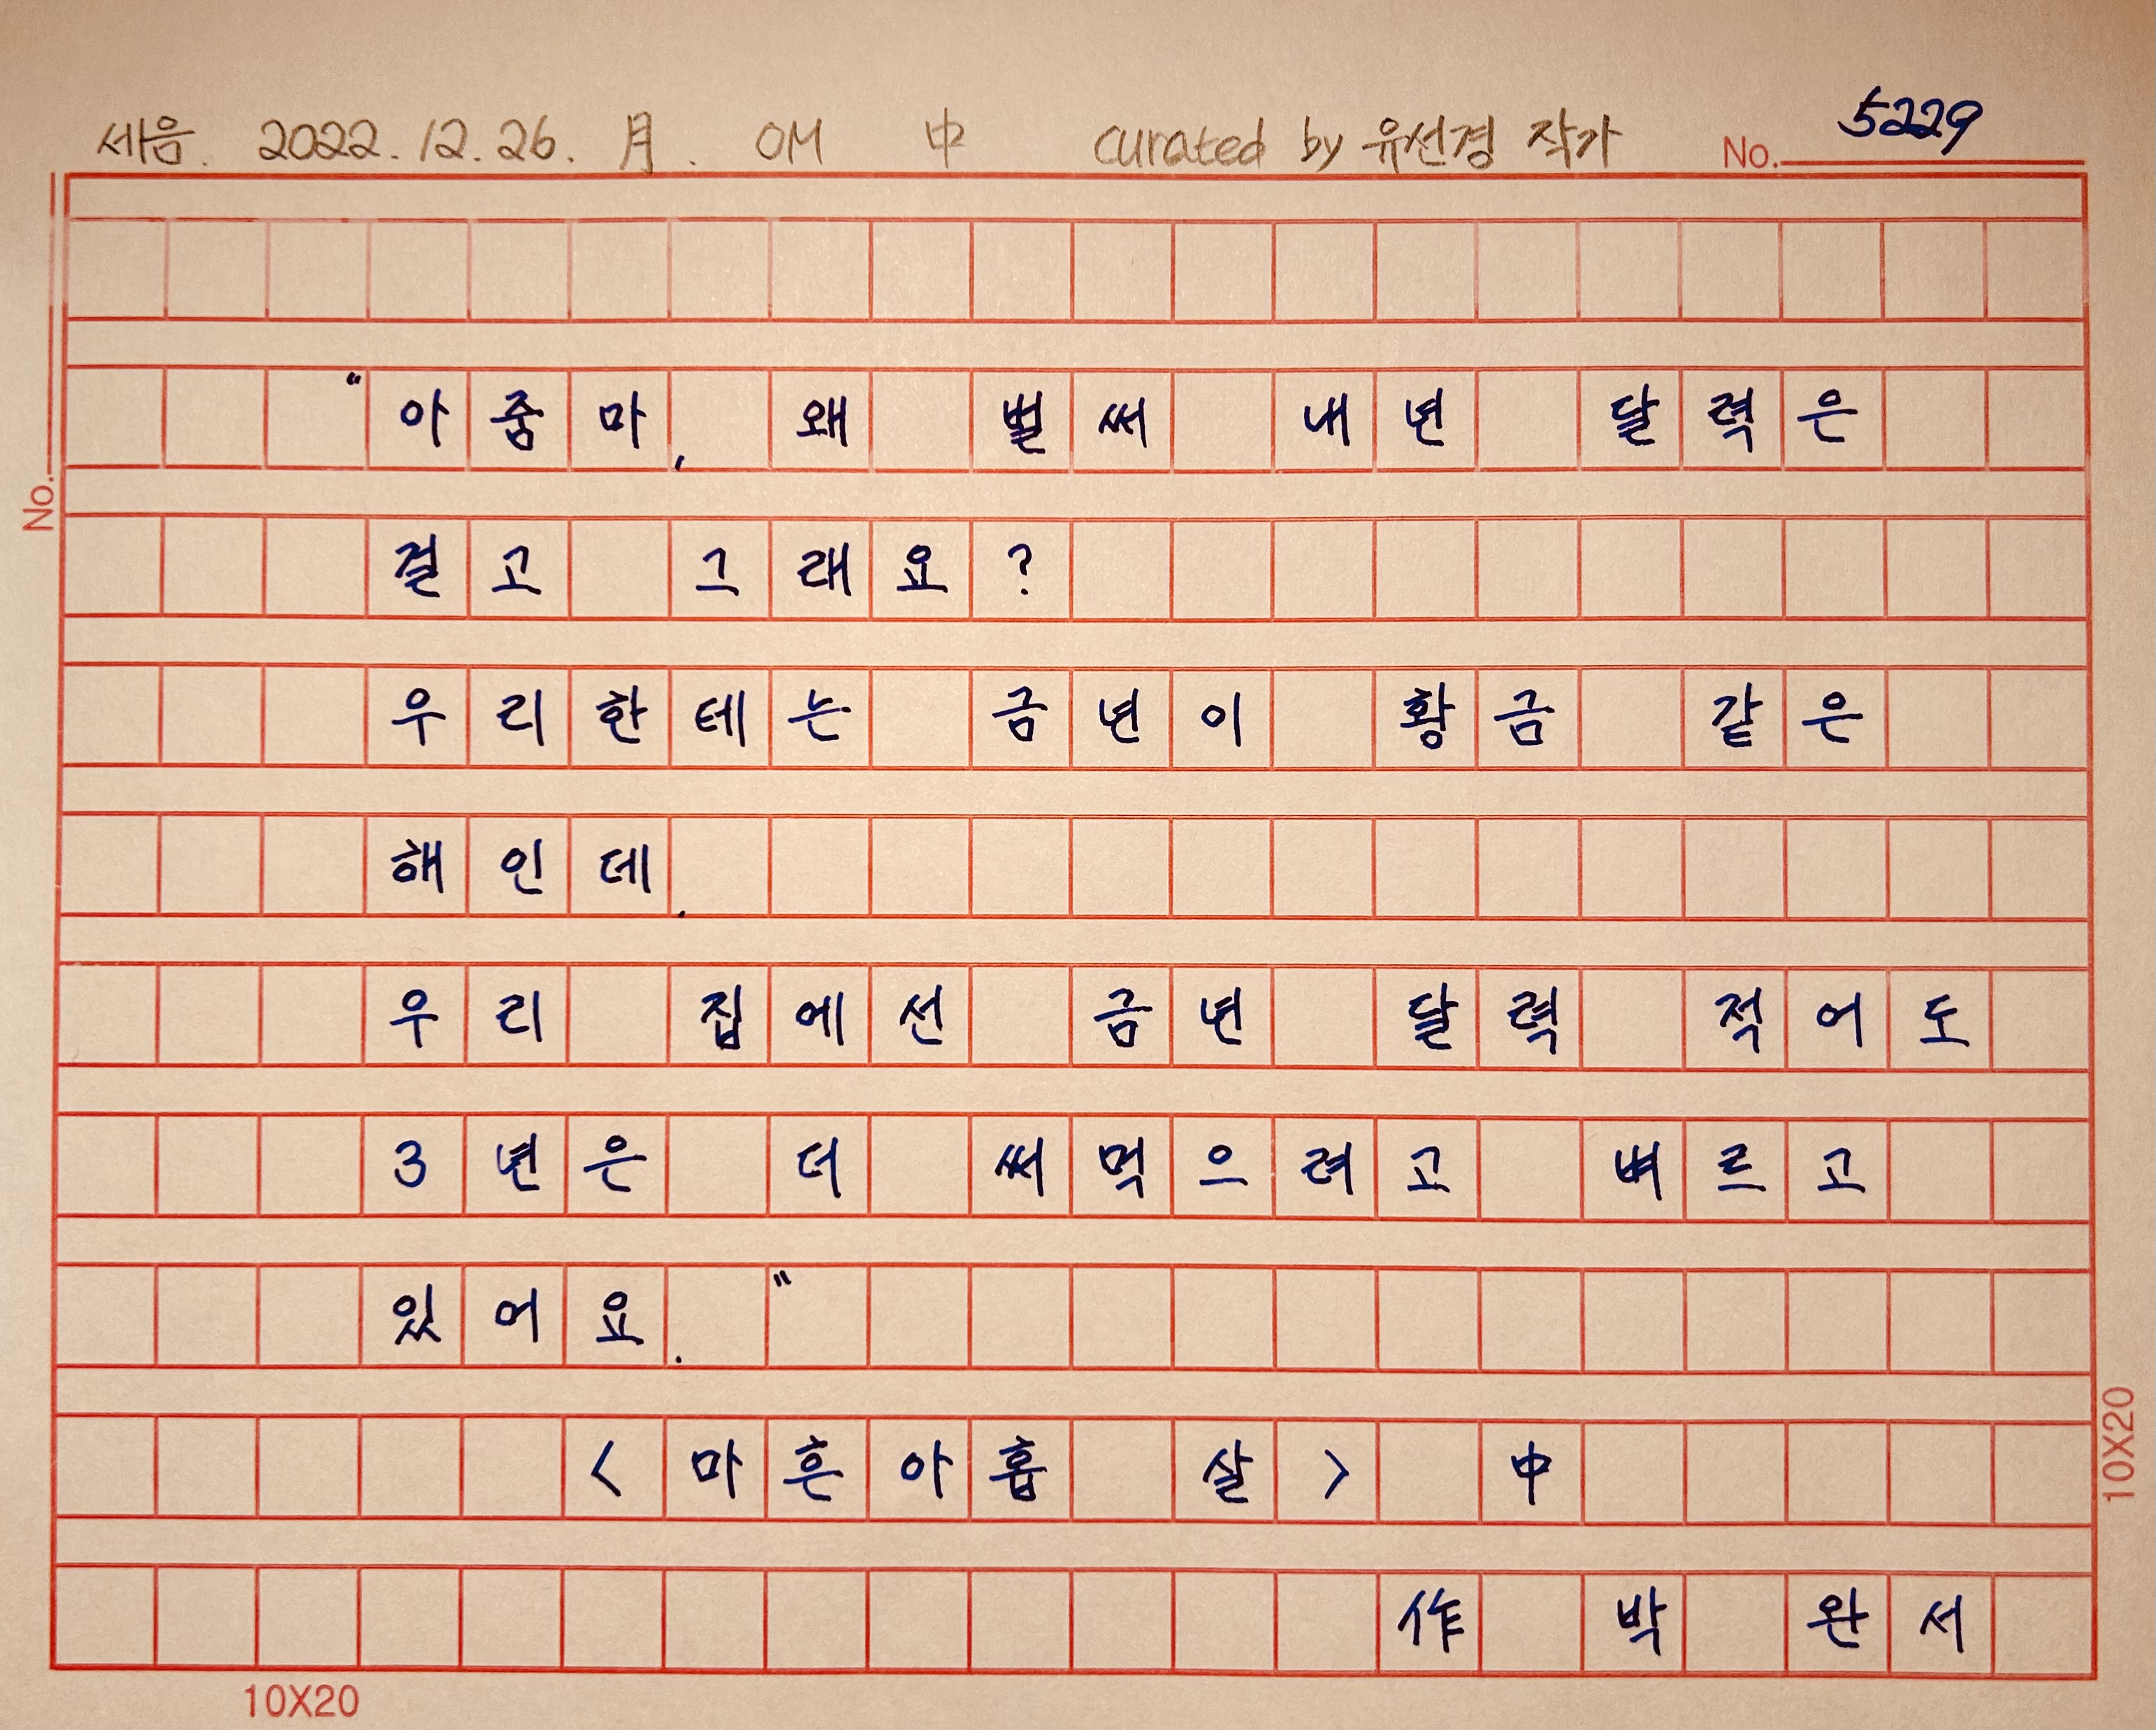 세음. 2022. 12. 26. 月. OM 中 curated by 유선경 작가 No. 5229
No.
"아줌마, 왜 벌써 내년 달력은
걸고 그래요?
우리한테는 금년이 황금 같은
해인데.
우리 집에선 금년 달력 적어도
3년은 더 써먹으려고 벼르고
있어요."
<마흔아홉 살> 中
作 박 완서
10X20
10X20